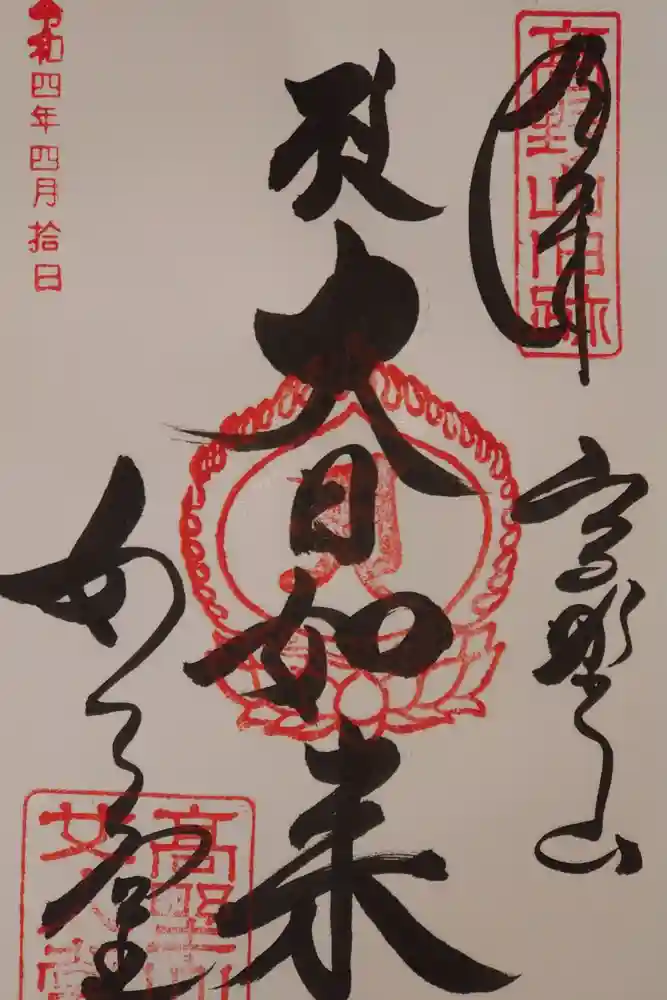 奉拝
高野山旧跡
高野山
大日如来
女人堂
高野山
女人堂
令和四年四月拾日